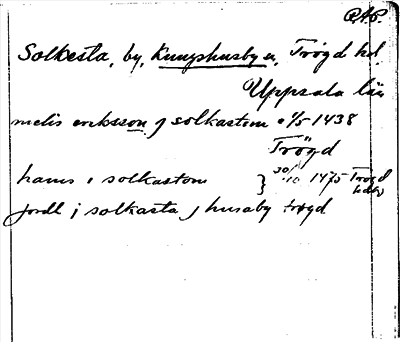 RAP.
Solkesta, by, Kungshusby sn, Trögd hd.
Uppsala län
melis eriksson j solkastom 1/5 1438
Trögd
hans i solkastom } 30/10 1475 Trögd
jordh j solkasta j husaby trögd